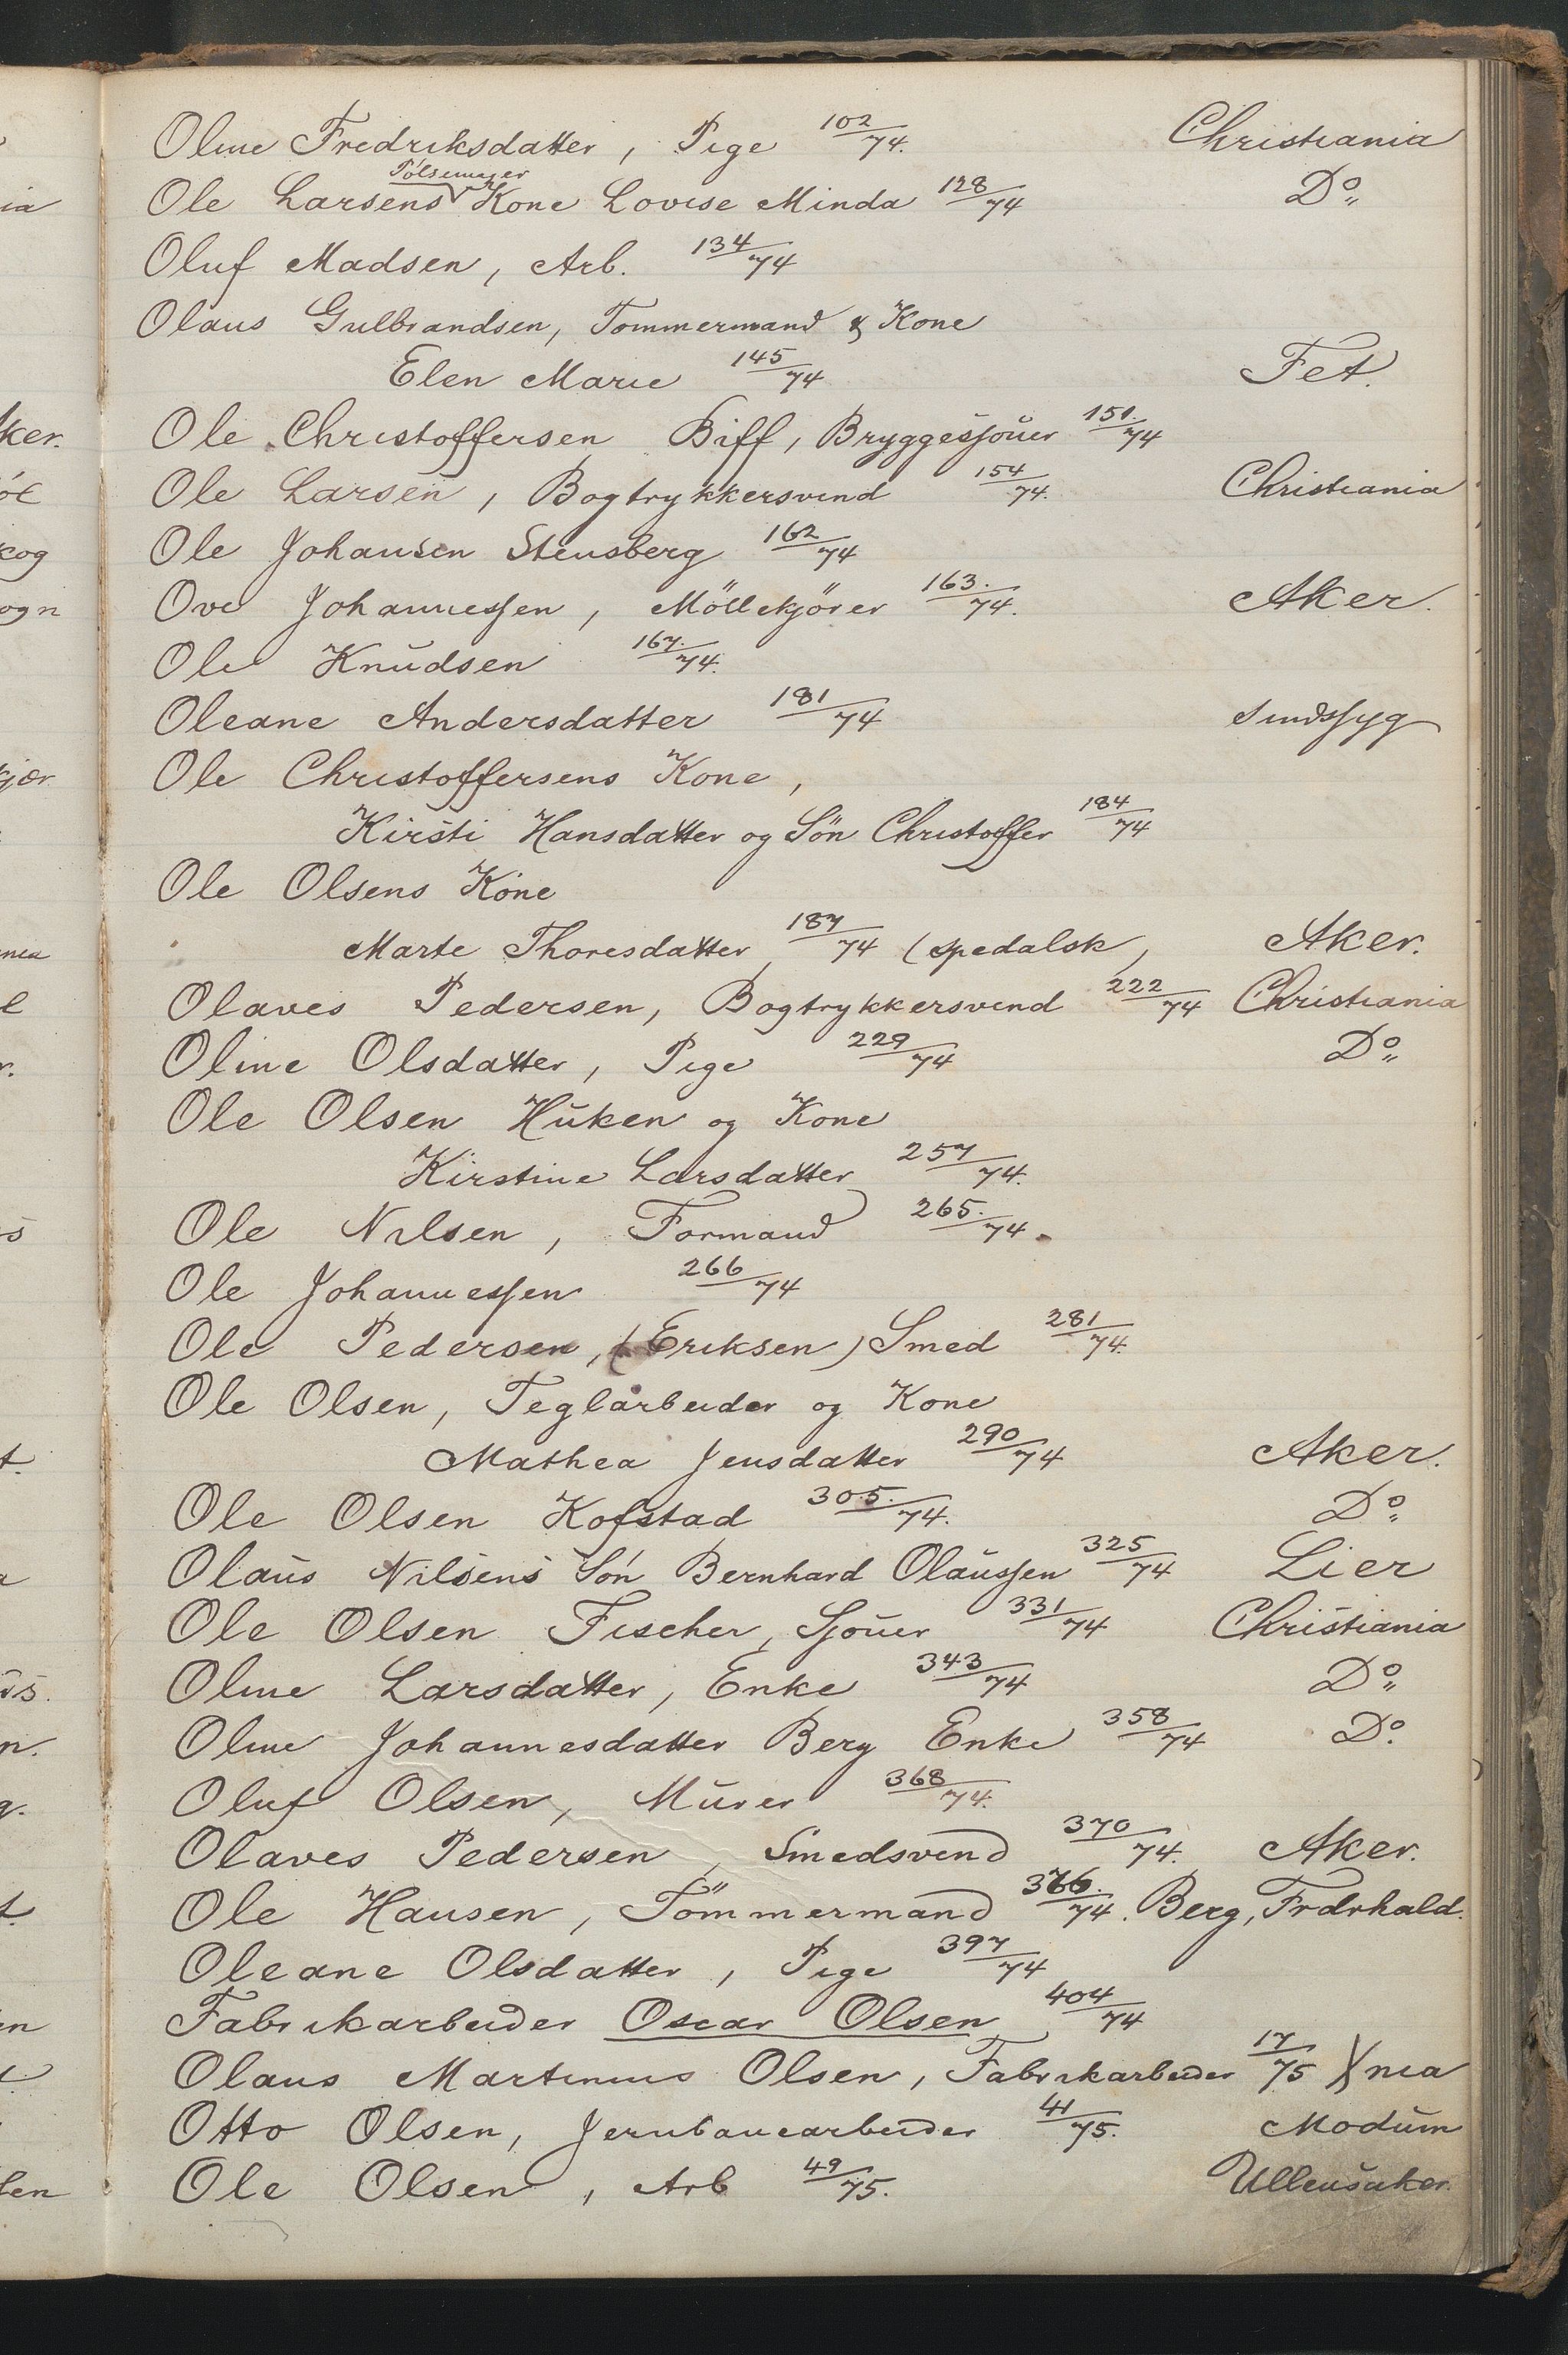 Oline Fredriksdatter, Pige 102/74. Christiania
Ole Larsens Pölsemager Kone Lovise Minda 128/74 Do„
Oluf Madsen, Arb. 134/74
Olaus Gulbrandsen, Tommermand & Kone
Elen Marie 145/74 Fet.
Ole Christoffersen Biff, Bryggesjouer 151/74
Ole Larsen, Bogtrykkersvend 154/74. Christiania
Ole Johansen Stensberg 162/74
Ove Johannessen, Möllekjörer 163./74. Aker.
Ole Knudsen 167./74.
Oleane Andersdatter 181/74 sindssyg
Ole Christoffersens Kone,
Kirsti Hansdatter og Sön Christoffer 184/74
Ole Olsens Kone
Marte Thoresdatter, 187/74 (spedalsk, Aker.
Olaves Pedersen, Bogtrykkersvend 222/74 Christiania
Oline Olsdatter, Pige 229/74 Do„
Ole Olsen Huken og Kone
Kirstine Larsdatter 257/74.
Ole Nilsen, Formand 265./74.
Ole Johannessen 266/74
Ole Pedersen, (Eriksen) Smed 281/74.
Ole Olsen, Teglarbeider og Kone
Mathea Jensdatter 290/74 Aker.
Ole Olsen Kofstad 305./74. Do„
Olaus Nilsens Sön Bernhard Olaussen 325/74 Lier
Ole Olsen Fischer, Sjouer 331/74 Christiania
Oline Larsdatter, Enke 343/74 Do„
Oline Johannesdatter Berg Enke 358/74 Do.
Oluf Olsen, Murer 368/74.
Olaves Pedersen, Smedsvend 370/74. Aker.
Ole Hansen, Tömmermand /74. Berg, Frdrhald.
Oleane Olsdatter, Pige 397/74
Fabrikarbeider Oscar Olsen 404/74
Olaus Martinius Olsen, Fabrikarbeider 17/75 Xnia
Otto Olsen, Jernbanearbeider 41/75. Modum
Ole Olsen, Arb 49/75. Ullensaker.